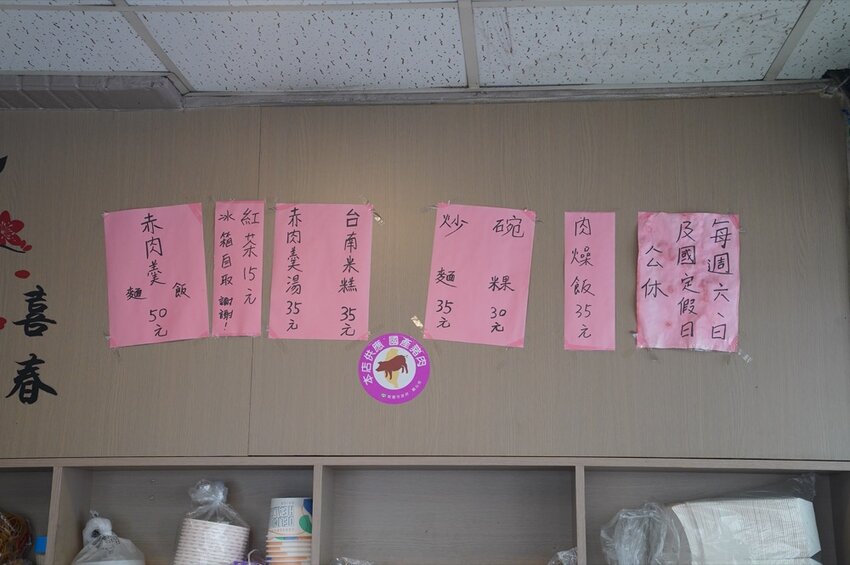 每週六、日
及國定假日
公休
肉燥飯35元
碗粿30元
炒麵35元
台南米糕35元
赤肉羹湯35元
紅茶15元
冰箱自取 謝謝!
赤肉羹
飯
麵
50元
本店供應 國產豬肉
喜
春